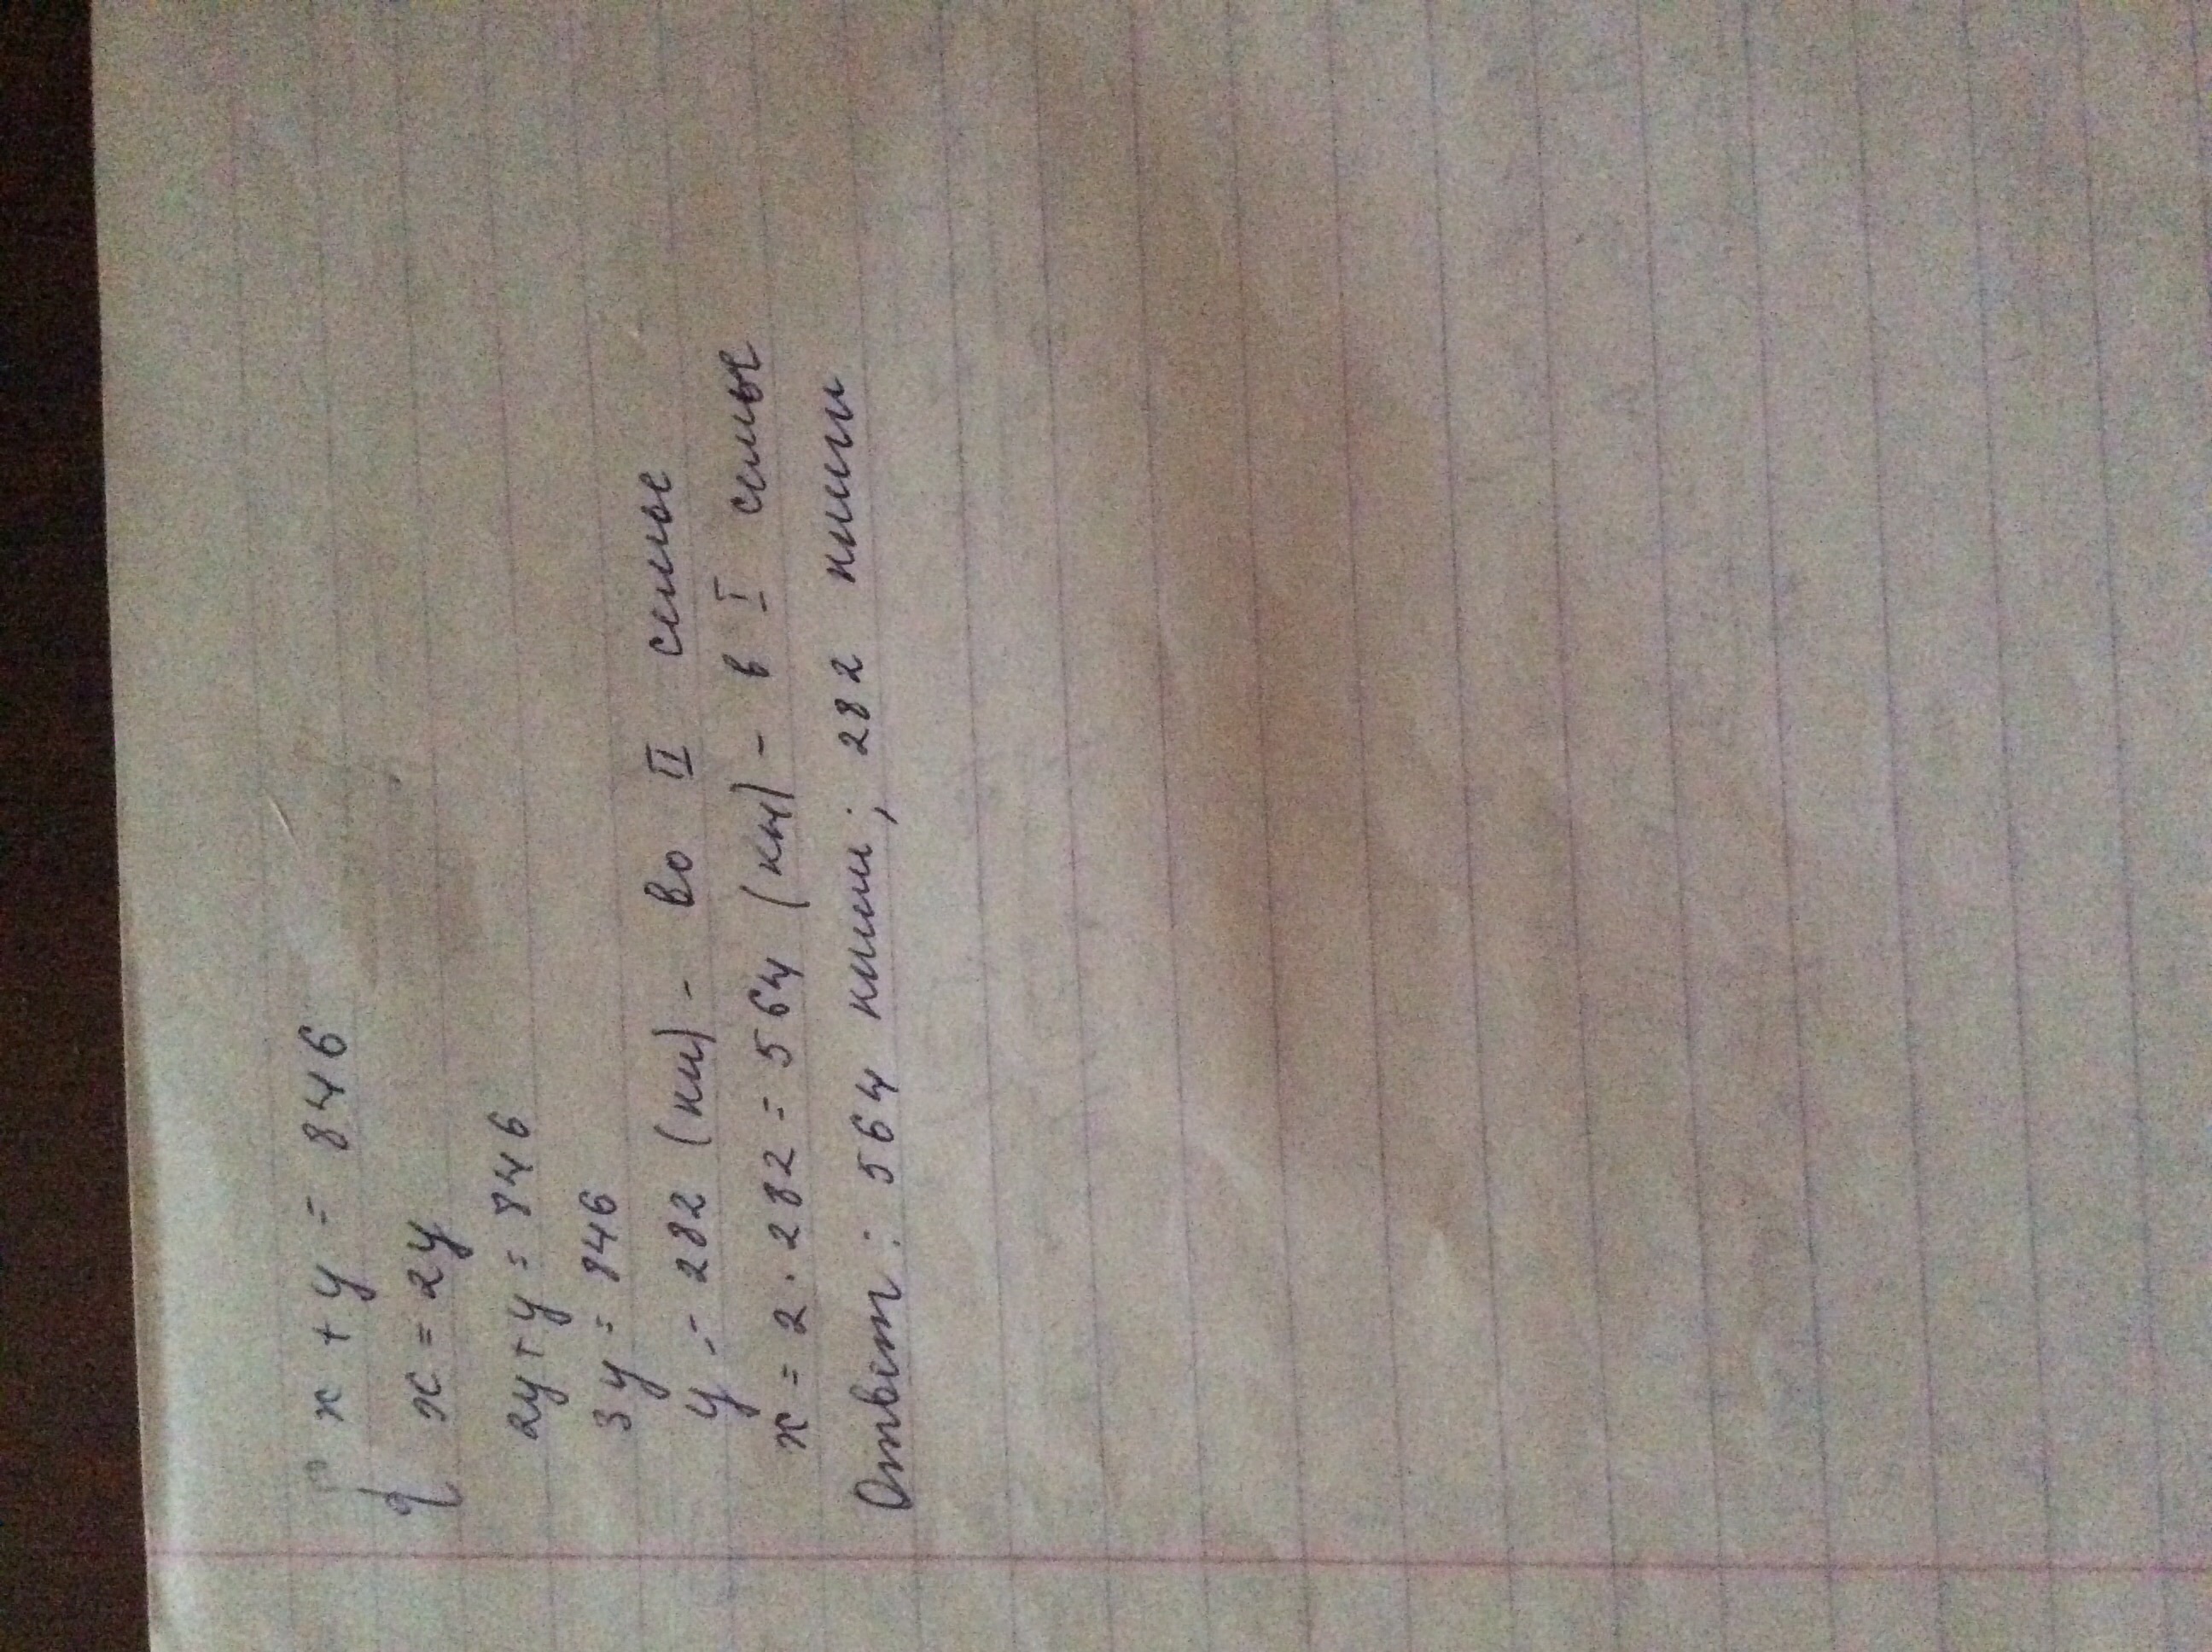 { x + y = 846
x = 2y
2y + y = 846
3y = 846
y = 282 (кн) - во II семье
x = 2 · 282 = 564 (кн) - в I семье
Ответ: 564 книги; 282 книги